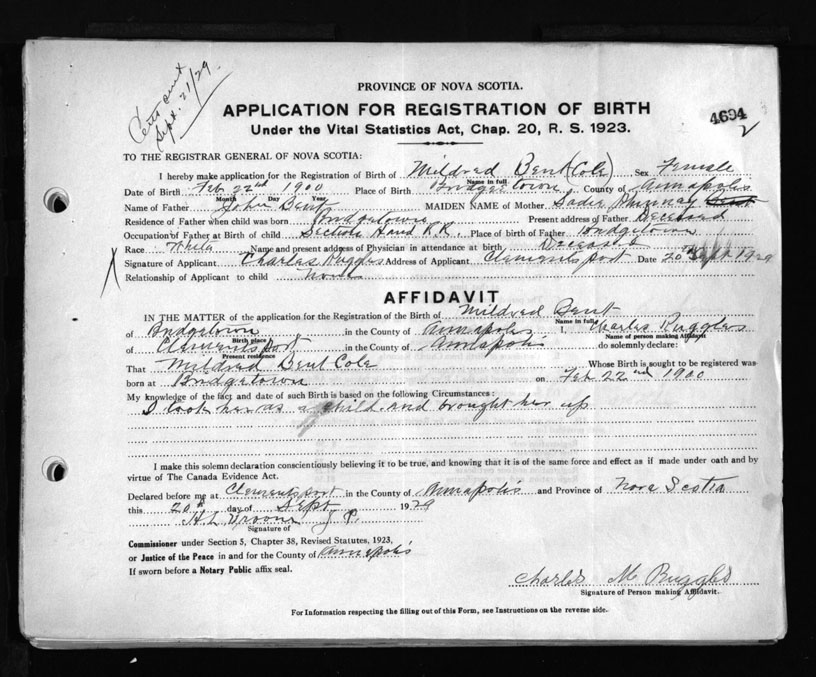 Certs sent
Sept. 21/29.
PROVINCE OF NOVA SCOTIA.
APPLICATION FOR REGISTRATION OF BIRTH
4694
2
Under the Vital Statistics Act, Chap. 20, R. S. 1923.
TO THE REGISTRAR GENERAL OF NOVA SCOTIA:
I hereby make application for the Registration of Birth of Mildred Bent (Cole) Sex Female
Name in full
Date of Birth Feb 22nd 1900 Place of Birth Bridgetown County of Annapolis
Month Day Year
Name of Father John Bent MAIDEN NAME of Mother Sadie Phinney Bent
Residence of Father when child was born Bridgetown Present address of Father Deceased
Occupation of Father at Birth of child Section Hand R.R. Place of Birth of Father Bridgetown
Race White Name and present address of Physician in attendance at birth Deceased
Signature of Applicant Charles Ruggles Address of Applicant Clementsport Date 20th Sept 1929
Relationship of Applicant to child None
X
AFFIDAVIT
IN THE MATTER of the application for the Registration of the Birth of Mildred Bent
Name in full
of Bridgetown in the County of Annapolis I, Charles Ruggles
Birth place Name of person making Affidavit
of Clementsport in the County of Annapolis do solemnly declare:
Present residence
That Mildred Bent Cole Whose Birth is sought to be registered was
born at Bridgetown on Feb 22nd 1900
My knowledge of the fact and date of such Birth is based on the following Circumstances:
I took her as a child and brought her up
I make this solemn declaration conscientiously believing it to be true, and knowing that it is of the same force and effect as if made under oath and by
virtue of The Canada Evidence Act.
Declared before me at Clementsport in the County of Annapolis and Province of Nova Scotia
this 20th day of Sept 1929
H L Vroom J. P.
Signature of
Commissioner under Section 5, Chapter 38, Revised Statutes, 1923,
or Justice of the Peace in and for the County of Annapolis
If sworn before a Notary Public affix seal.
Charles M Ruggles
Signature of Person making Affidavit.
For Information respecting the filling out of this Form, see Instructions on the reverse side.